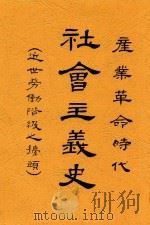 産業革命時代
社會主義史
(近世勞働階級之擡頭)